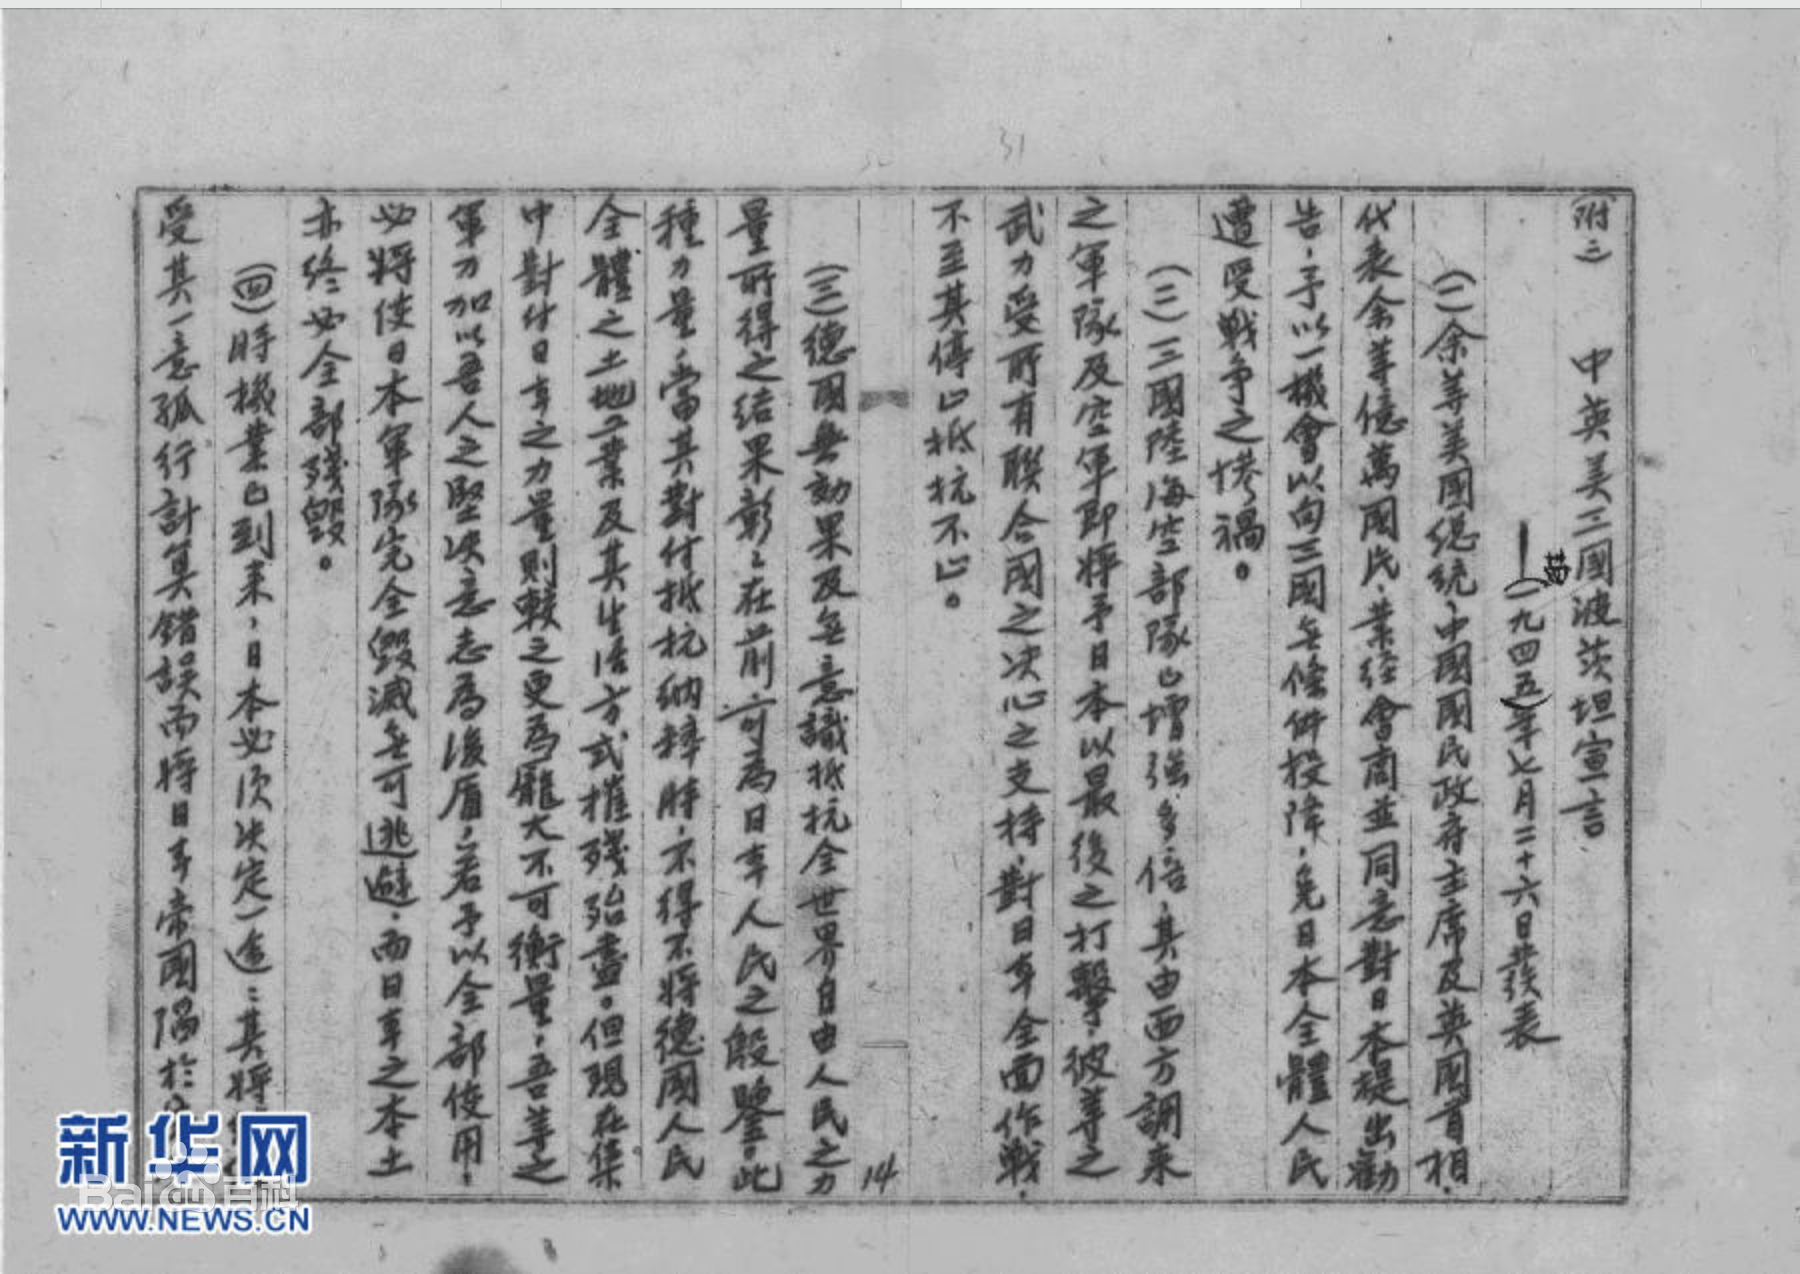 31
(附二) 中英美三國波茨坦宣言
(一九四五)年七月二十六日發表
(一)余等美國總統、中國國民政府主席及英國首相、
代表余等億萬國民、業經會商並同意對日本提出勸
告,予以一機會以向三國無條件投降,免日本全體人民
遭受戰爭之慘禍。
(二)三國陸海空部隊已增強多倍,其由西方調來
之軍隊及空軍即將予日本以最後之打擊,彼等之
武力受所有聯合國之決心之支持,對日本全面作戰,
不至其停止抵抗不止。
14
(三)德國無効果及無意識抵抗全世界自由人民之力
量所得之結果彰彰在前,可為日本人民之殷鑒。此
種力量,當其對付抵抗納粹時,不得不將德國人民
全體之土地工業及其生活方式摧殘殆盡。但現在集
中對付日本之力量則較之更為龐大不可衡量,吾等之
軍力加以吾人之堅決意志為後盾,若予以全部使用,
必將使日本軍隊完全毀滅無可逃避,而日本之本土
亦終必全部殘毀。
(四)時機業已到來,日本必須決定一途:其將
受其一意孤行計算錯誤而將日本帝國陷於
新华网
Bai百科
WWW.NEWS.CN